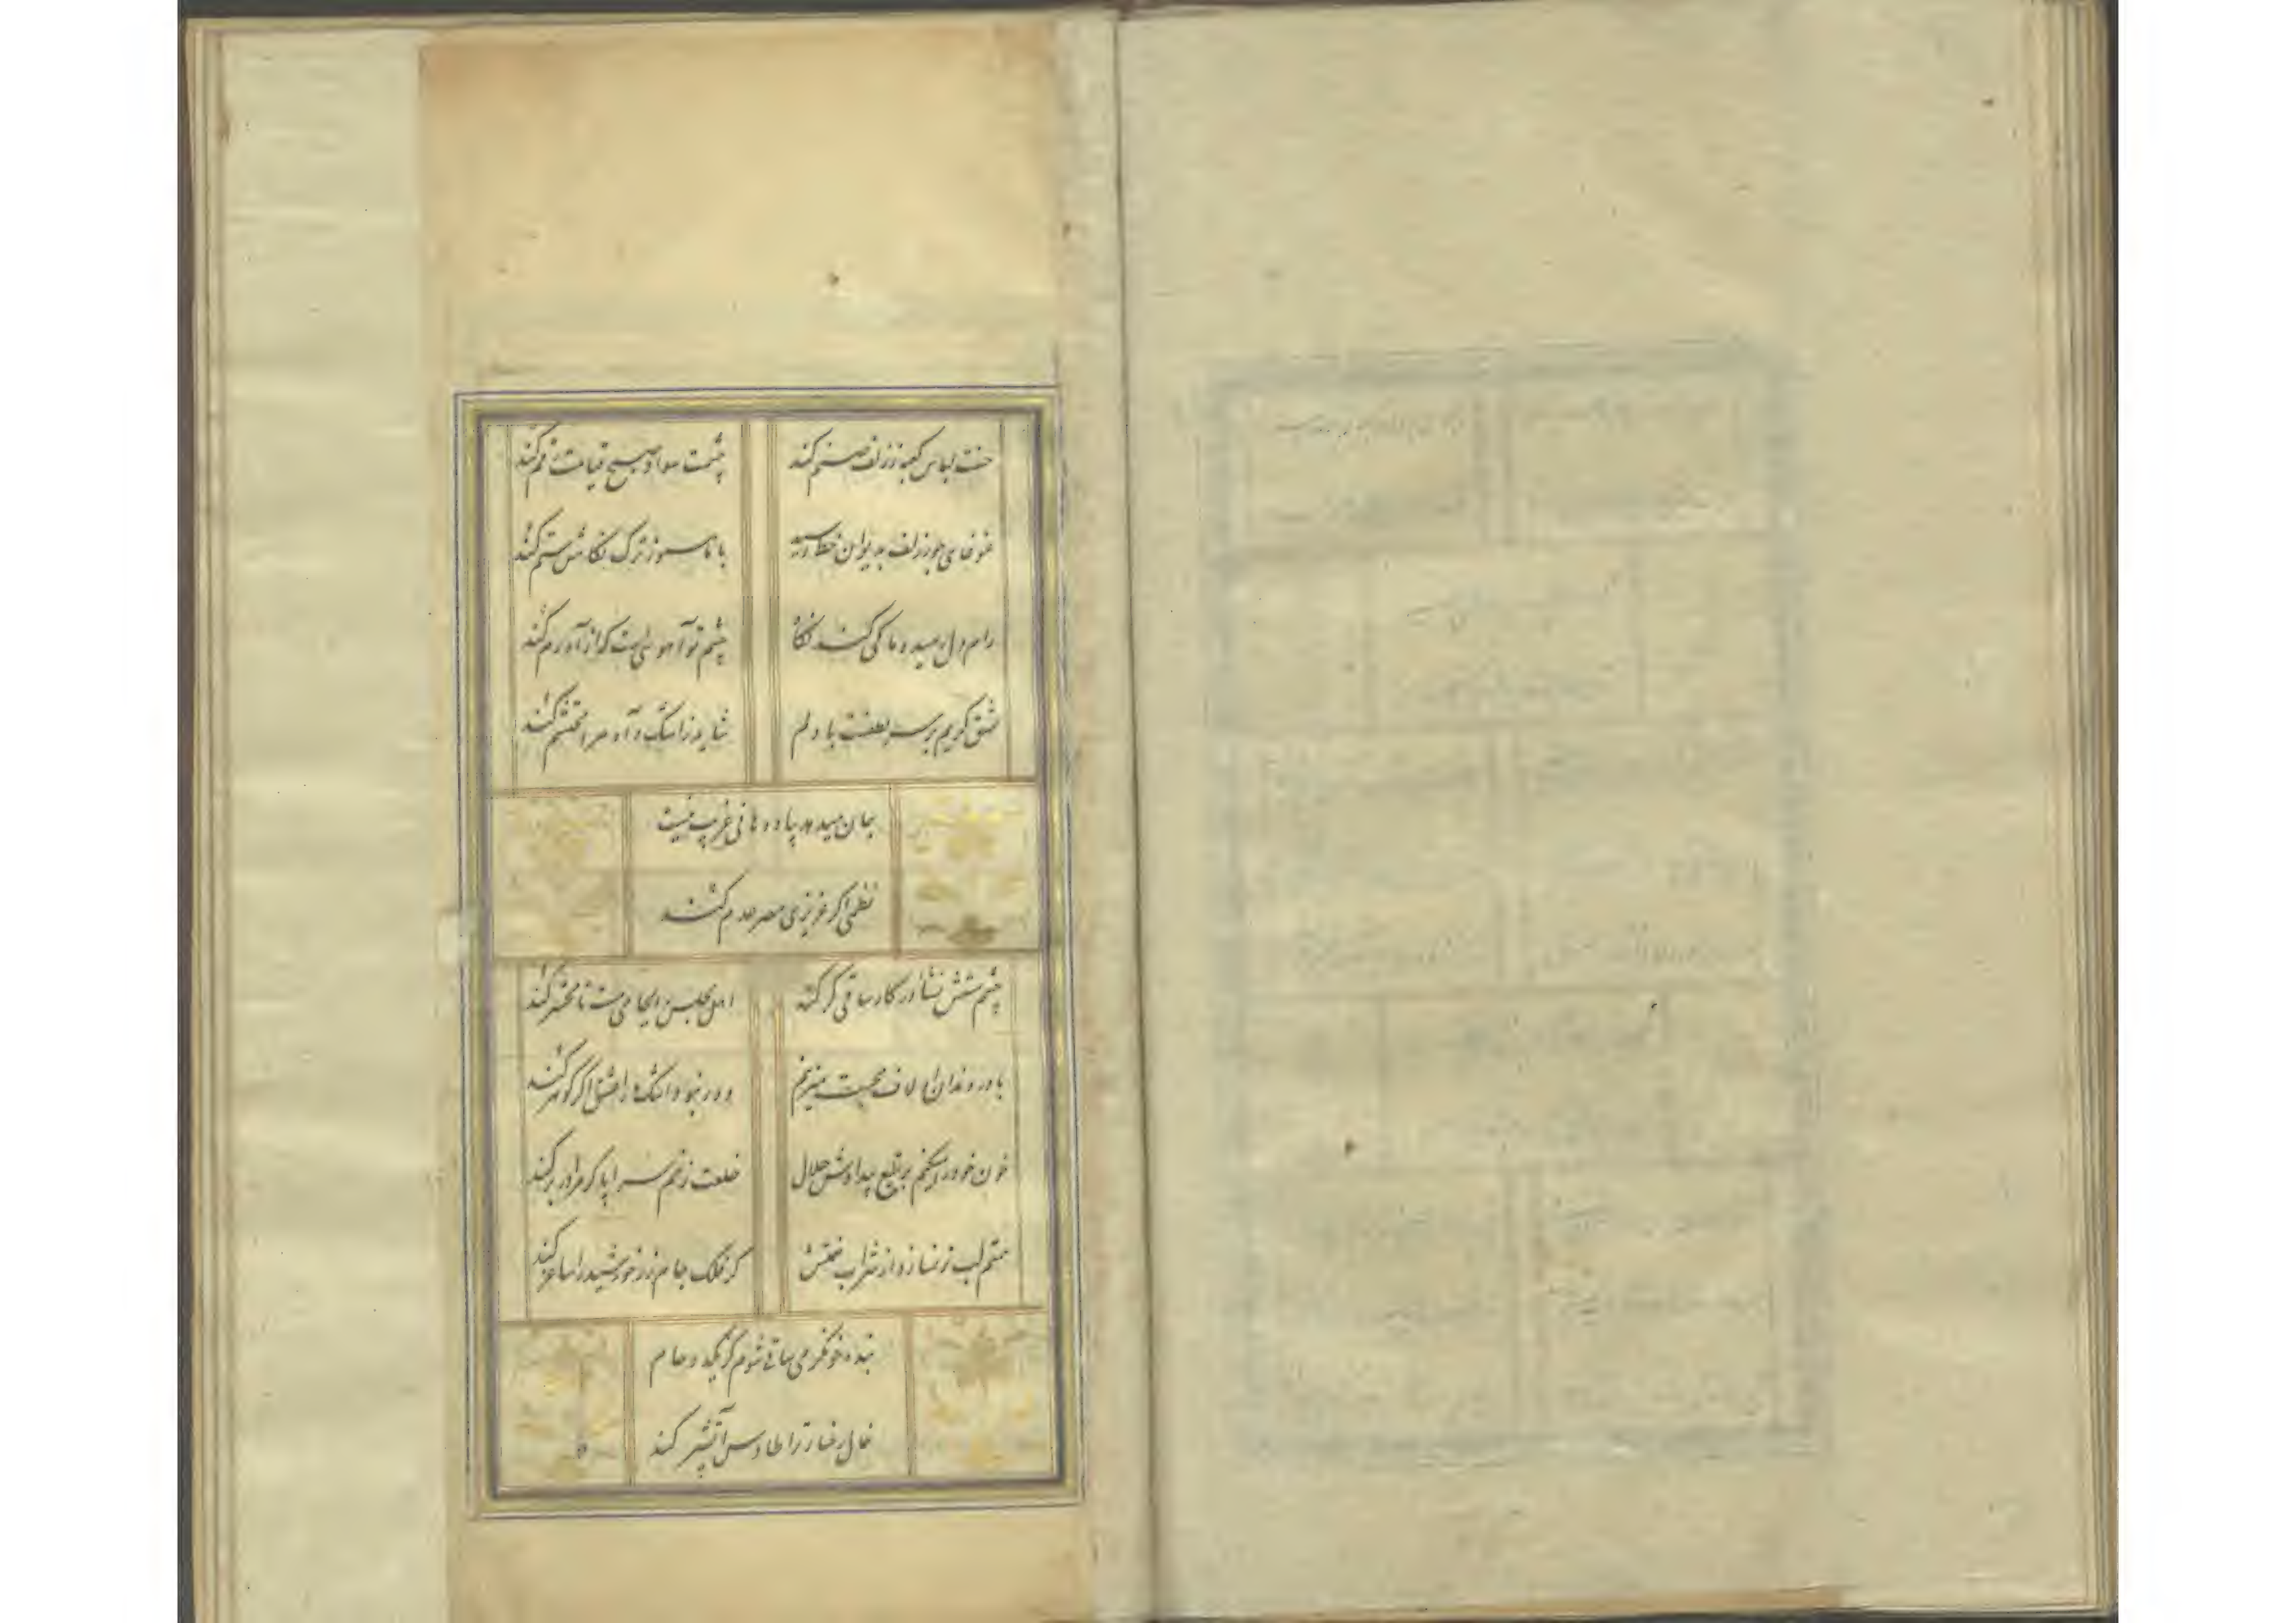 حسنت لباس کعبه ز زلف صنم کند
چشمت سواد صبح قیامت رقم کند
غوغای جور زلف بدیوان خط رسد
با ما هنوز ترک نگاهش ستم کند
رام دل رمیده ما کی کند نگاه
چشم تو آهوئیست که از آه رم کند
عشق کریم بر سر لطفست با دلم
شاید ز اشک و آه مرا محتشم کند
جان میدهد بیاد دهانی غریب نیست
نظمی اگر عزیزی مصر عدم کند
چشم مستش نشأ در کار ساقی گر کند
اهل مجلس را بجامی مست تا محشر کند
با در دندان او لاف محبت میزنم
دور نبود اشک ما را عشق اگر گوهر کند
خون خود را میکنم بر تیغ بیدادش حلال
خلعت زخم سراپا گر مرا در بر کند
هستم لب ز خمیازه از شراب
گر فلک جام زر خورشید را ساغر کند
بنده خونگرمی ساقی شوم کز یک دو جام
خال رخسار ترا طاوس آتش پر کند